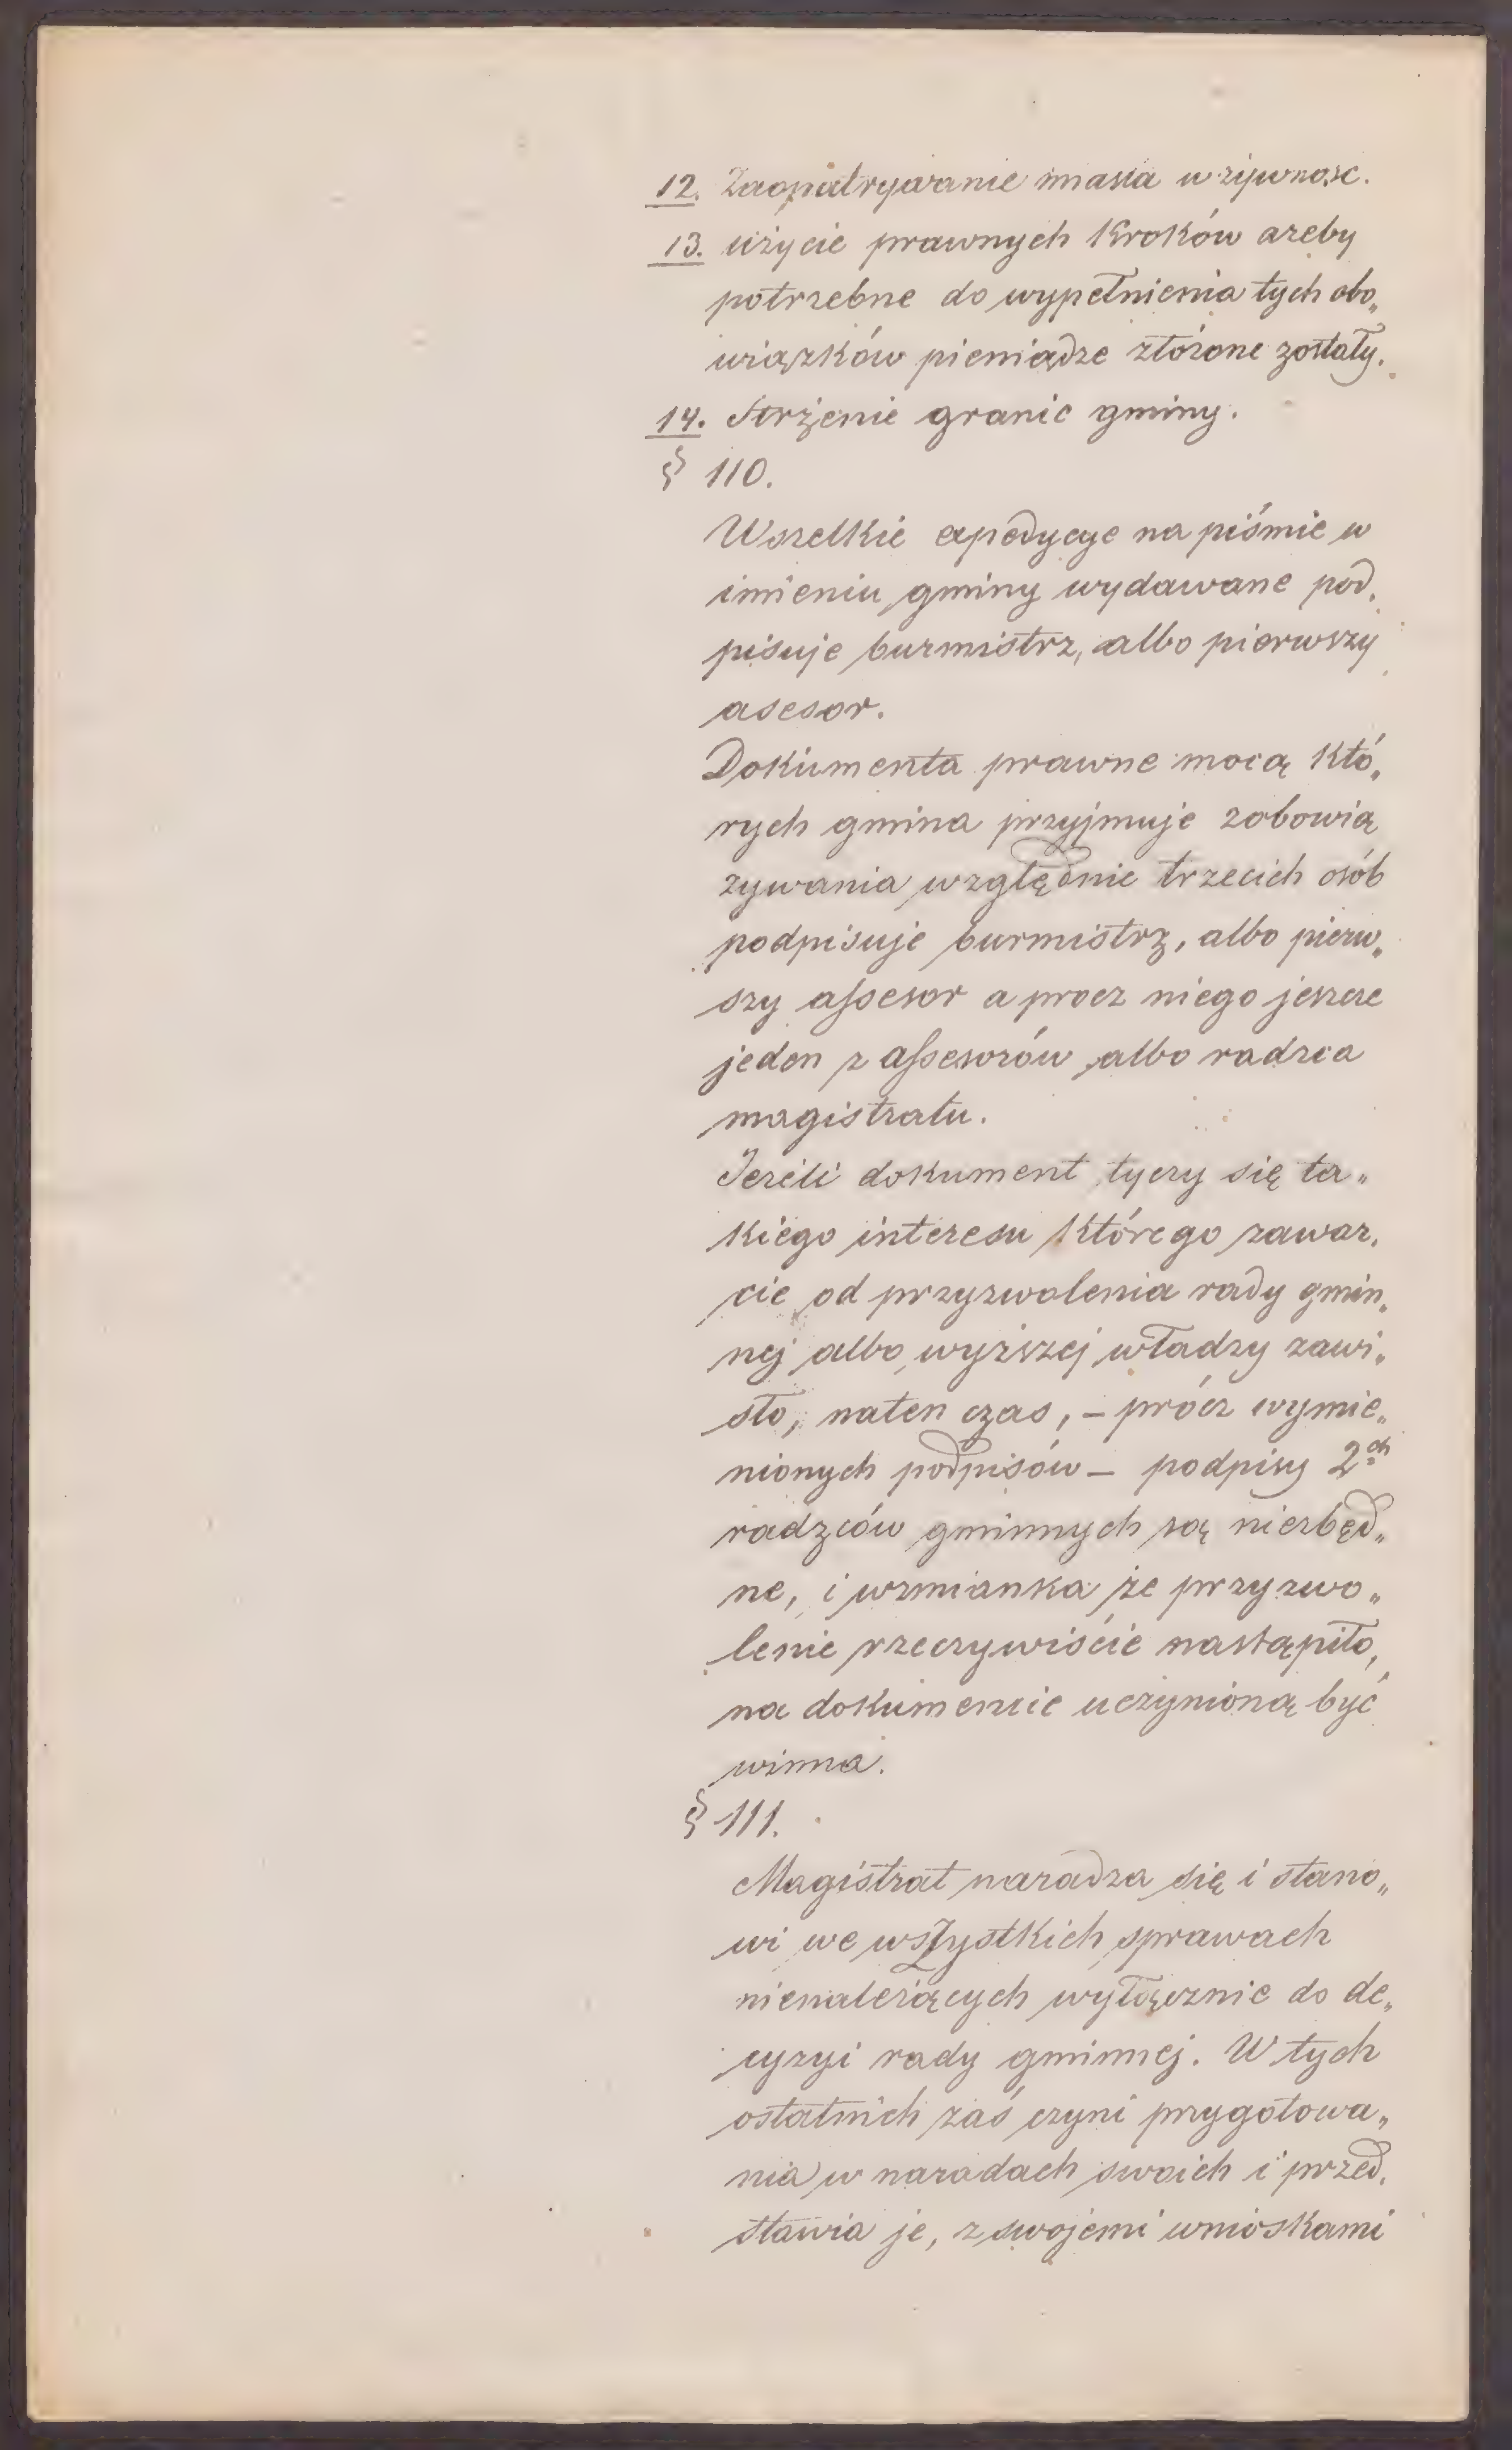 12. Zaopatrywanie miasta w zijwność.
13. użycie prawnych kroków ażeby
potrzebne do wypełnienia tych obo„
wiązków pieniądze złożone zostały.
14. Strzenie granic gminy.
§ 110.
Wszelkie expedycye na piśmie w
imieniu gminy wydawane pod„
pisuje burmistrz, albo pierwszy
asesor.
Dokumenta prawne mocą któ„
rych gmina przyjmuje zobowią
zywania względnie trzecich osób
podpisuje burmistrz, albo pierw„
szy assesor a procz niego jeszcze
jeden z assesorów, albo radzca
magistratu.
Jeżeli dokument tyczy się ta„
kiego interesu którego zawar„
cie od przyzwolenia rady gmin„
nej albo wyższej władzy zawi„
sło, naten czas, – prócz wymie„
nionych podpisów – podpisy 2ch
radzców gminnych są niezbęd„
ne, i wzmianka że przyzwo„
lenie rzeczywiście nastąpiło,
na dokumencie uczynioną być
winna.
§ 111.
Magistrat naradza się i stano„
wi we wszystkich sprawach
nienależących wyłącznie do de„
cyzyi rady gminnej. W tych
ostatnich zaś czyni przygotowa„
nia w naradach swoich i przed„
stawia je, z swojemi wnioskami